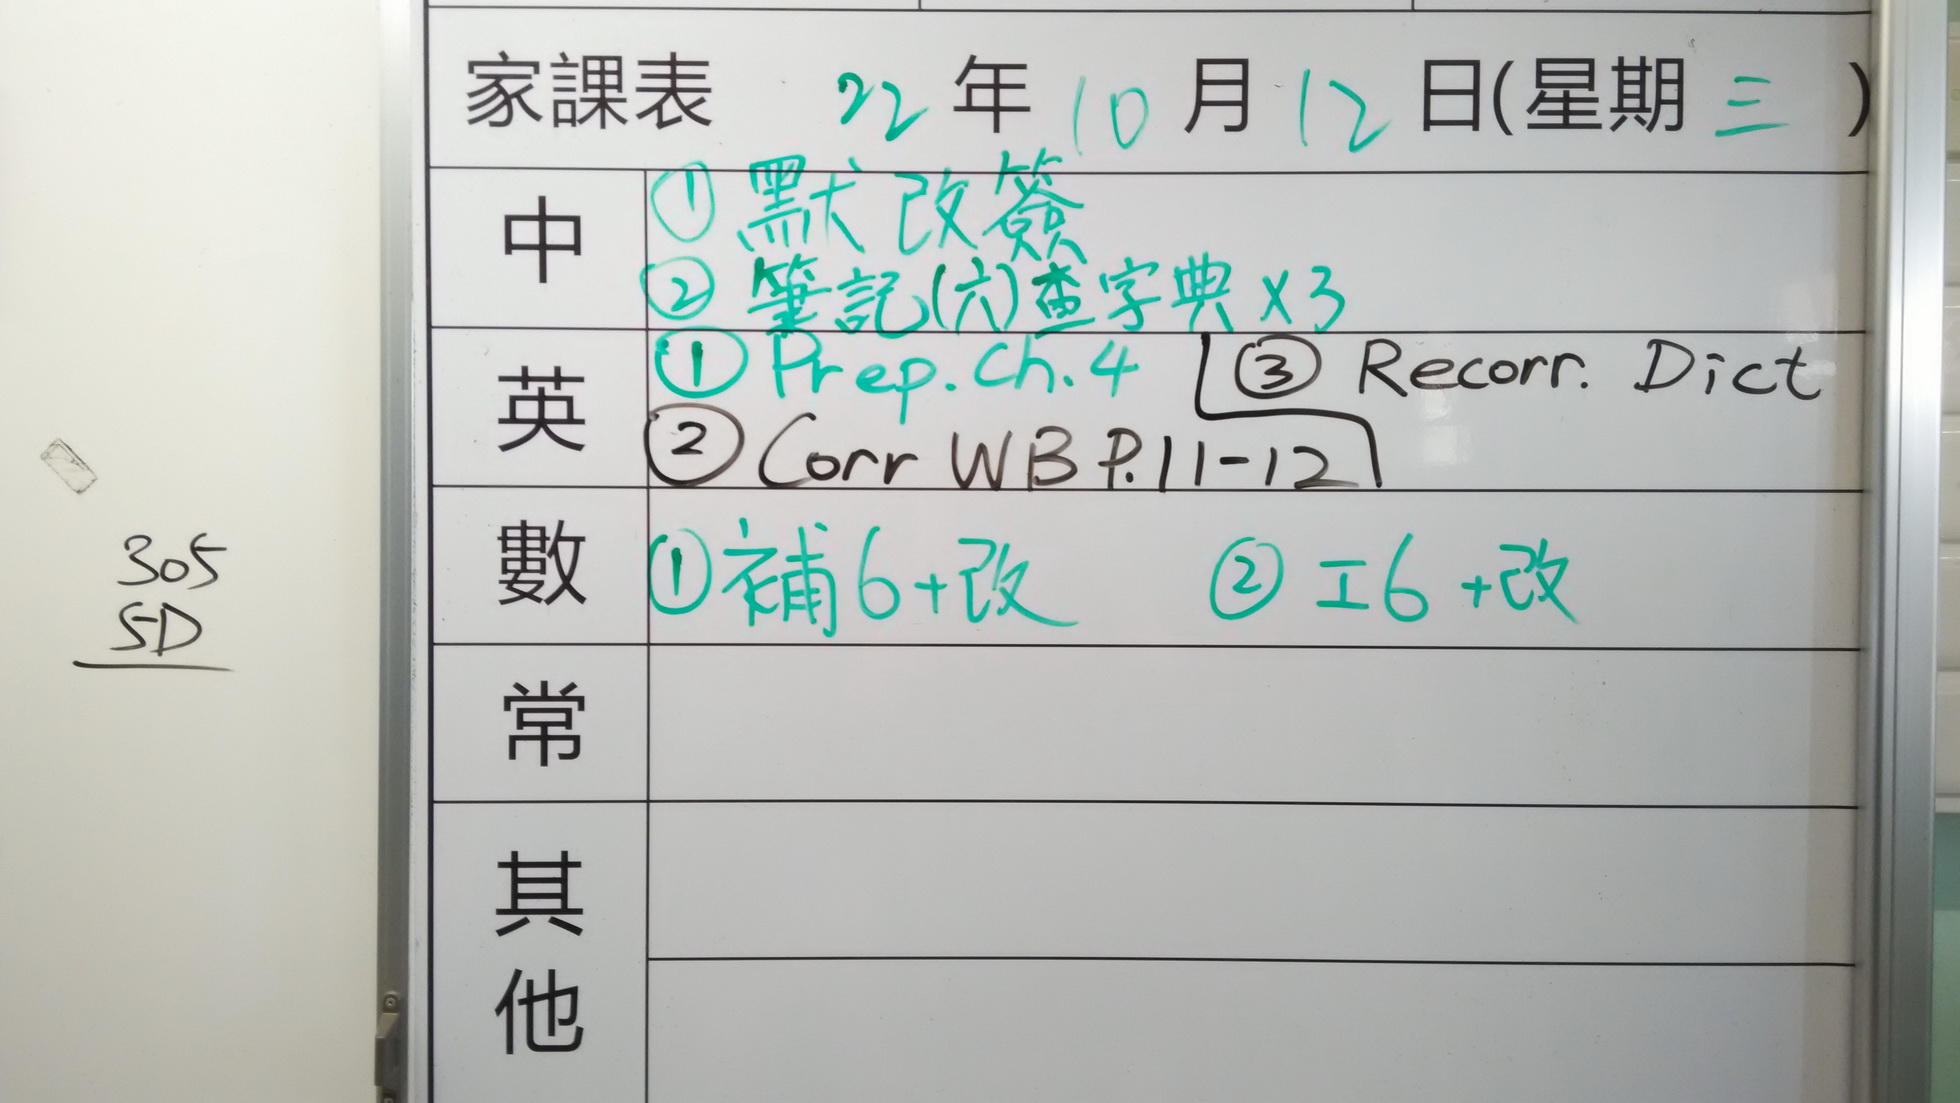 家課表 22年10月12日(星期三)
中
① 默改簽
② 筆記(六)查字典x3
英
① Prep. Ch. 4
③ Recorr. Dict
② Corr WB P.11-12
數
① 補6+改 ② 工6+改
常
其他
305
5D